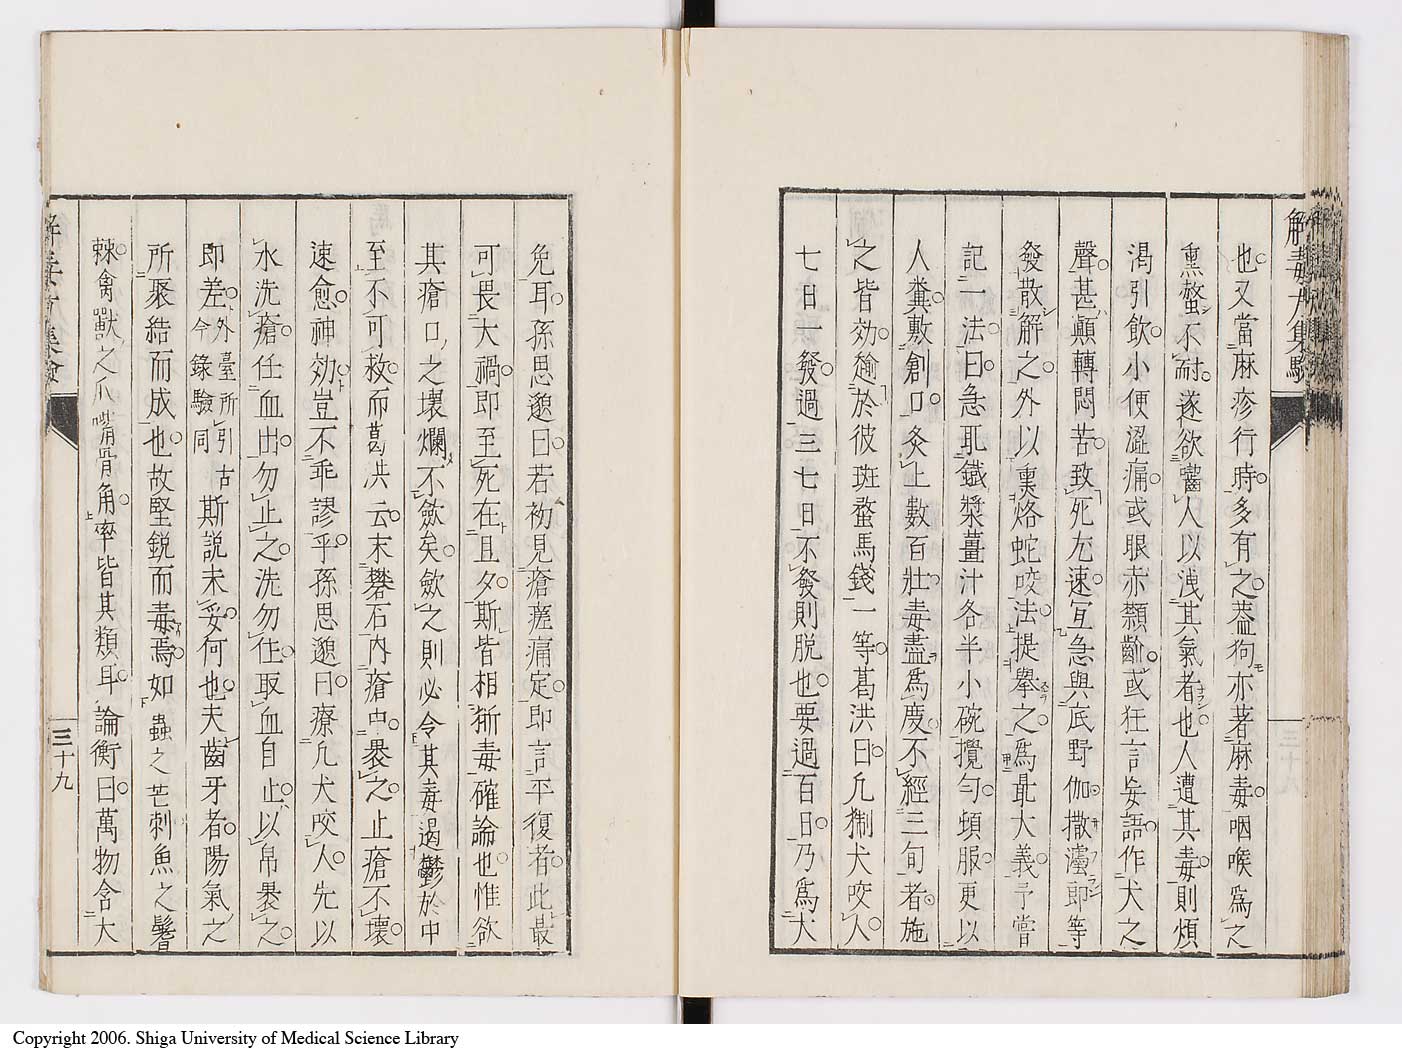 解毒方集驗
也又當麻疹行時多有之蓋狗亦著麻毒咽喉爲之
熏螫不耐遂欲齧人以洩其氣者也人遭其毒則煩
渇引飲小便澀痛或眼赤顙齡或狂言妄語作犬之
聲甚顛轉悶苦致死尤速冝急與底野伽撒灎即等
發散解之外以熏烙蛇咬法提擧之爲最大義予嘗
記一法曰急取鐵漿薑汁各半小碗攪匀頓服更以
人糞敷創口灸上數百壯毒盡爲度不經三旬者施
之皆効逾於彼斑蝥馬錢一等葛洪曰凡猘犬咬人
七日一發過三七日不發則脱也要過百日乃爲大
免耳孫思邈曰若初見瘡瘥痛定即言平復者此最
可畏大禍即至死在且夕斯皆相斨毒確論也惟欲
其瘡口之壞爛不斂矣斂之則必令其毒遏鬱於中
至不可救而葛洪云末礬石內瘡中裹之止瘡不壞
速愈神効豈不乖謬乎孫思邈曰療凡犬咬人先以
水洗瘡任血出勿止之洗勿住取血自止以帛裹之
即差外臺所引古今錄驗同斯説未妥何也夫齒牙者陽氣之
所聚結而成也故堅鋭而毒焉如蟲之芒刺魚之鬐
棘禽獸之爪嘴骨角率皆其類耳論衡曰萬物含大
三十九